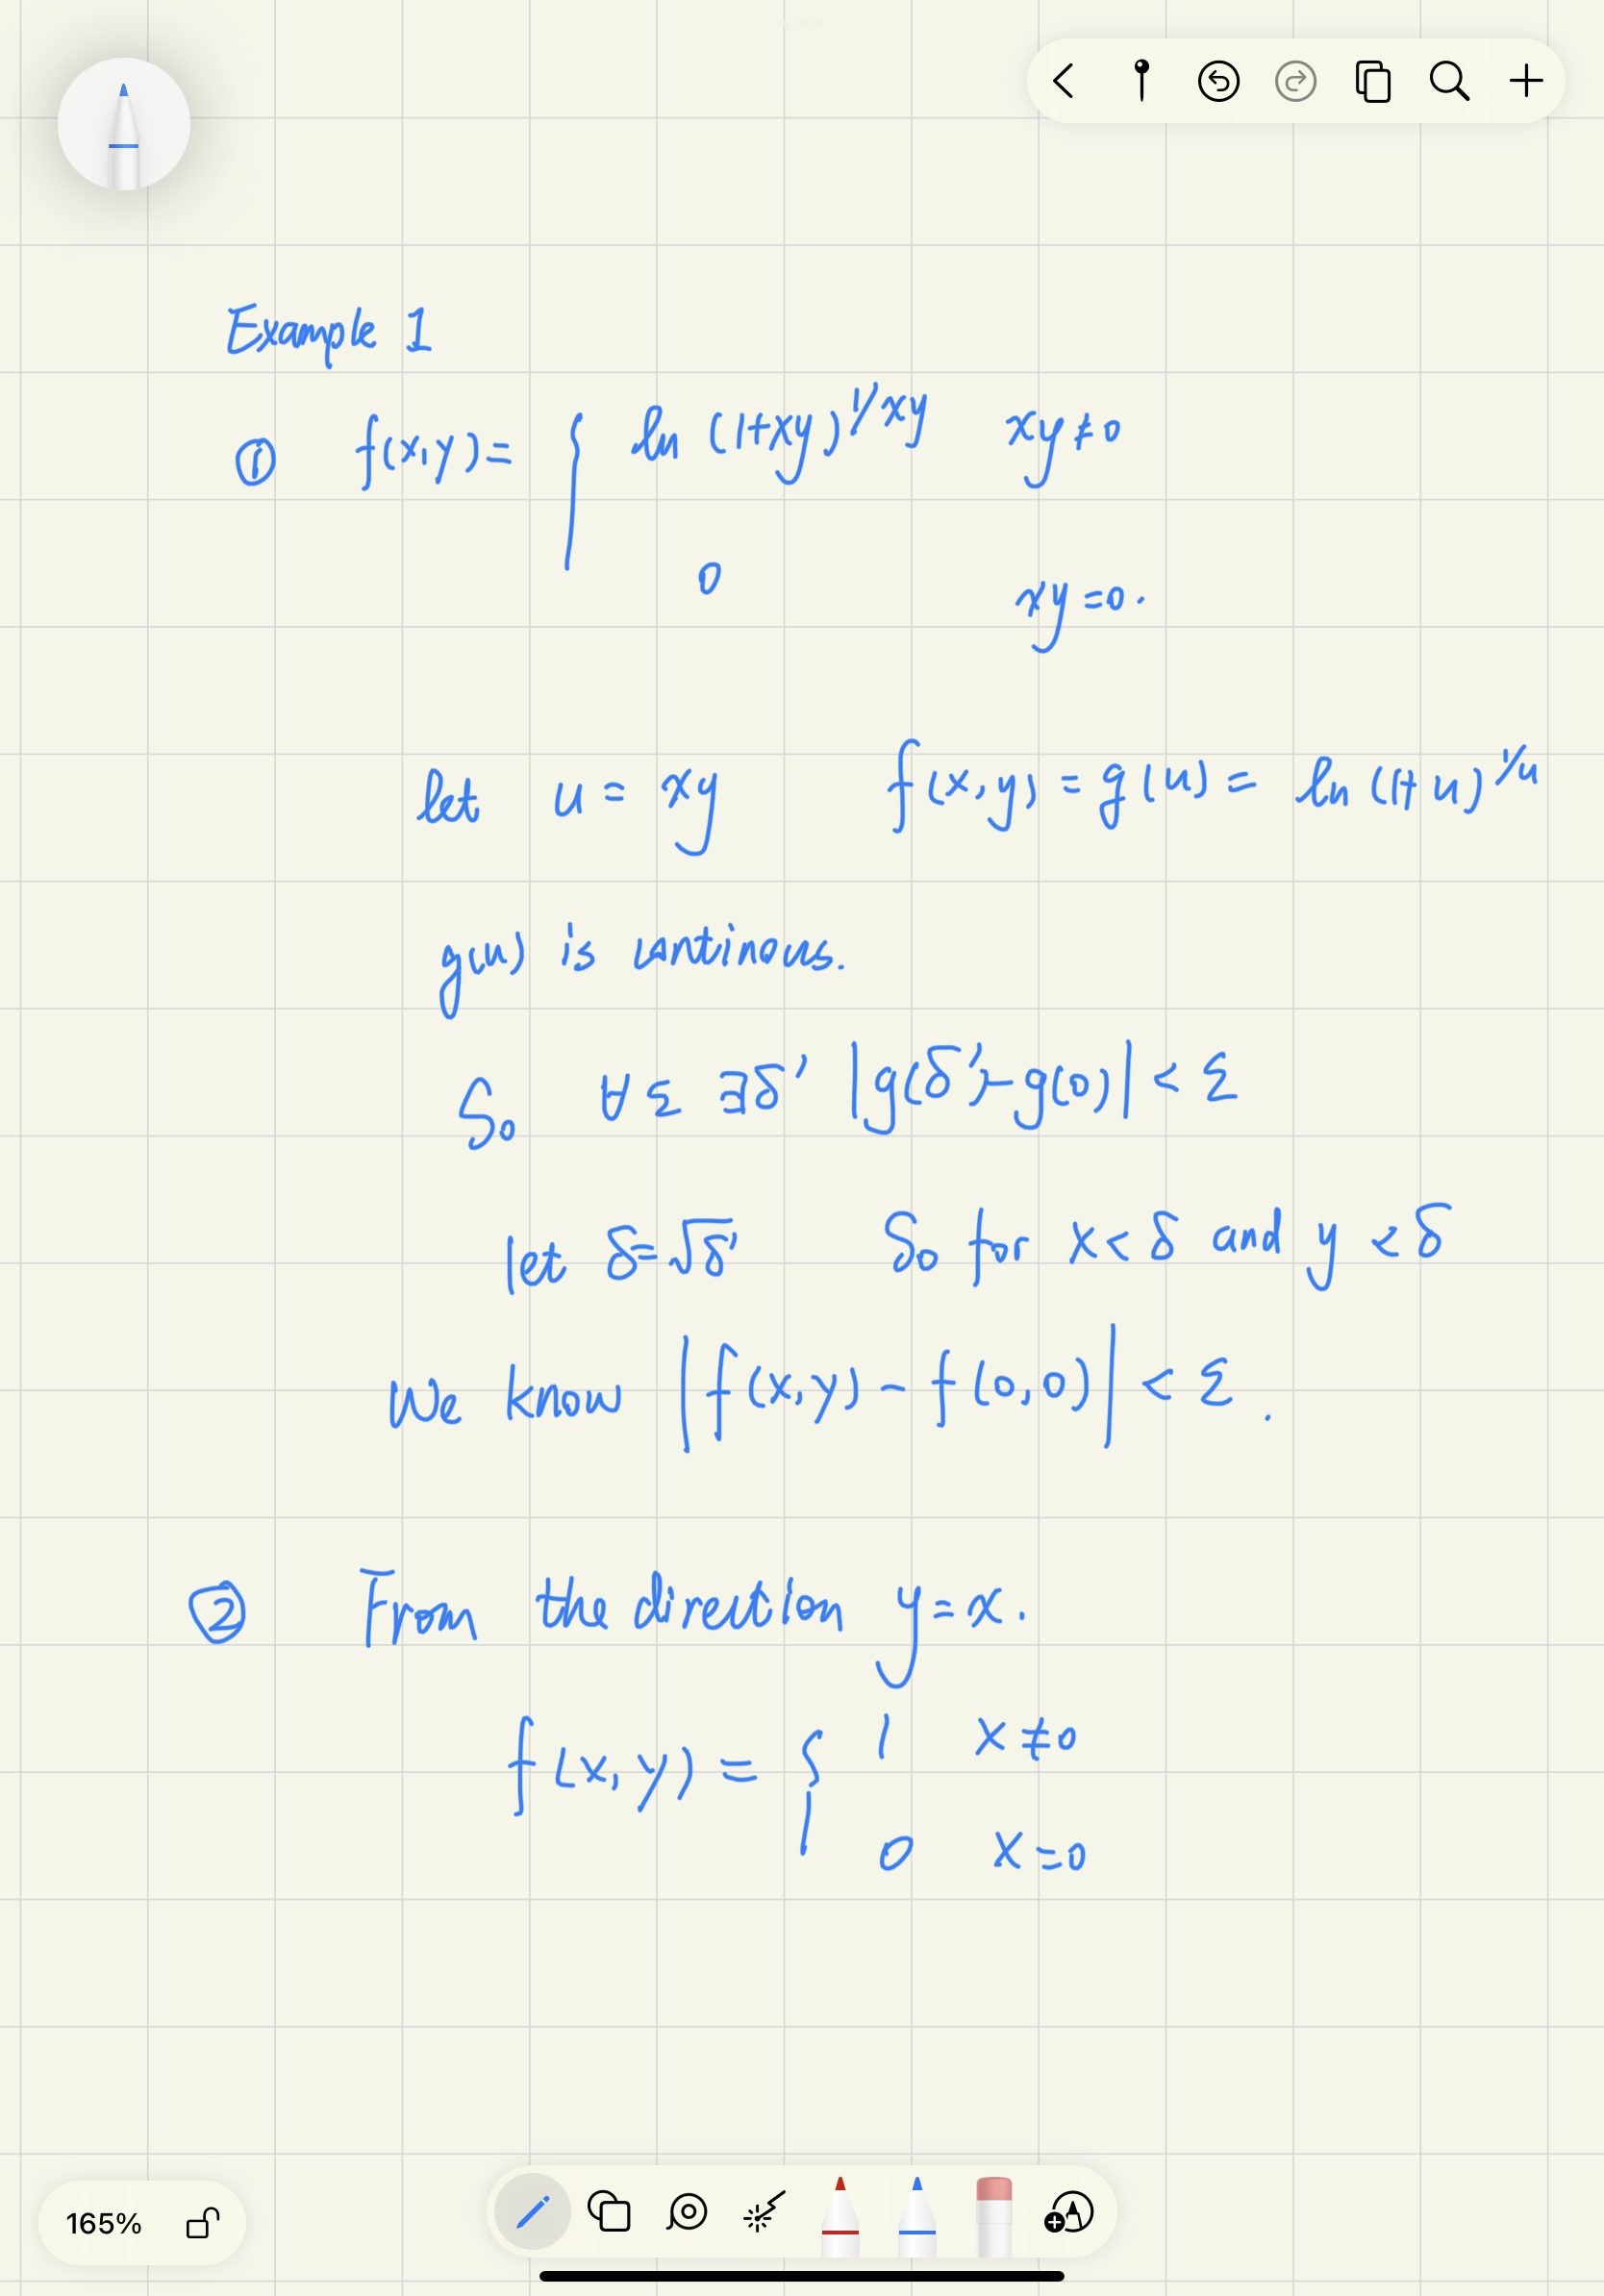 Example 1
① f(x,y)= { ln (1+xy)^{1/xy} xy≠0
0 xy=0.
let u = xy f(x,y) = g(u) = ln (1+u)^{1/u}
g(u) is continous.
So ∀ε ∃δ' |g(δ')-g(0)| < ε
let δ=√δ' So for x<δ and y<δ
We know |f(x,y) - f(0,0)| < ε.
② From the direction y=x.
f(x,y) = { 1 x≠0
0 x=0
165%